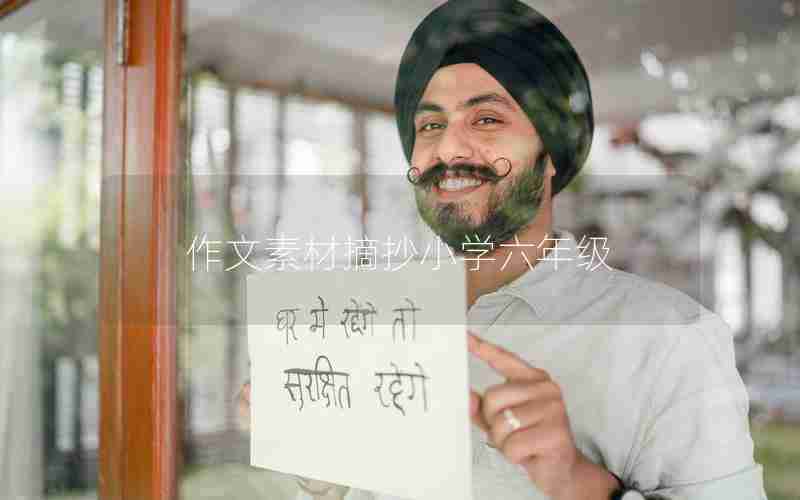 作文素材摘抄小学六年级
घर मे रहेंगे तो
सुरक्षित रहेगे